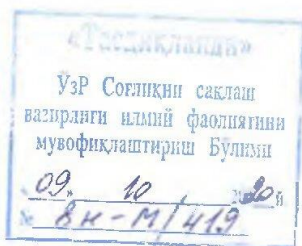 «Тасдиқланди»
УзР Соғлиқни сақлаш
вазирлиги илмий фаолиятини
мувофиқлаштириш Бўлими
«09» 10 2020 й
№ 8н-м/419